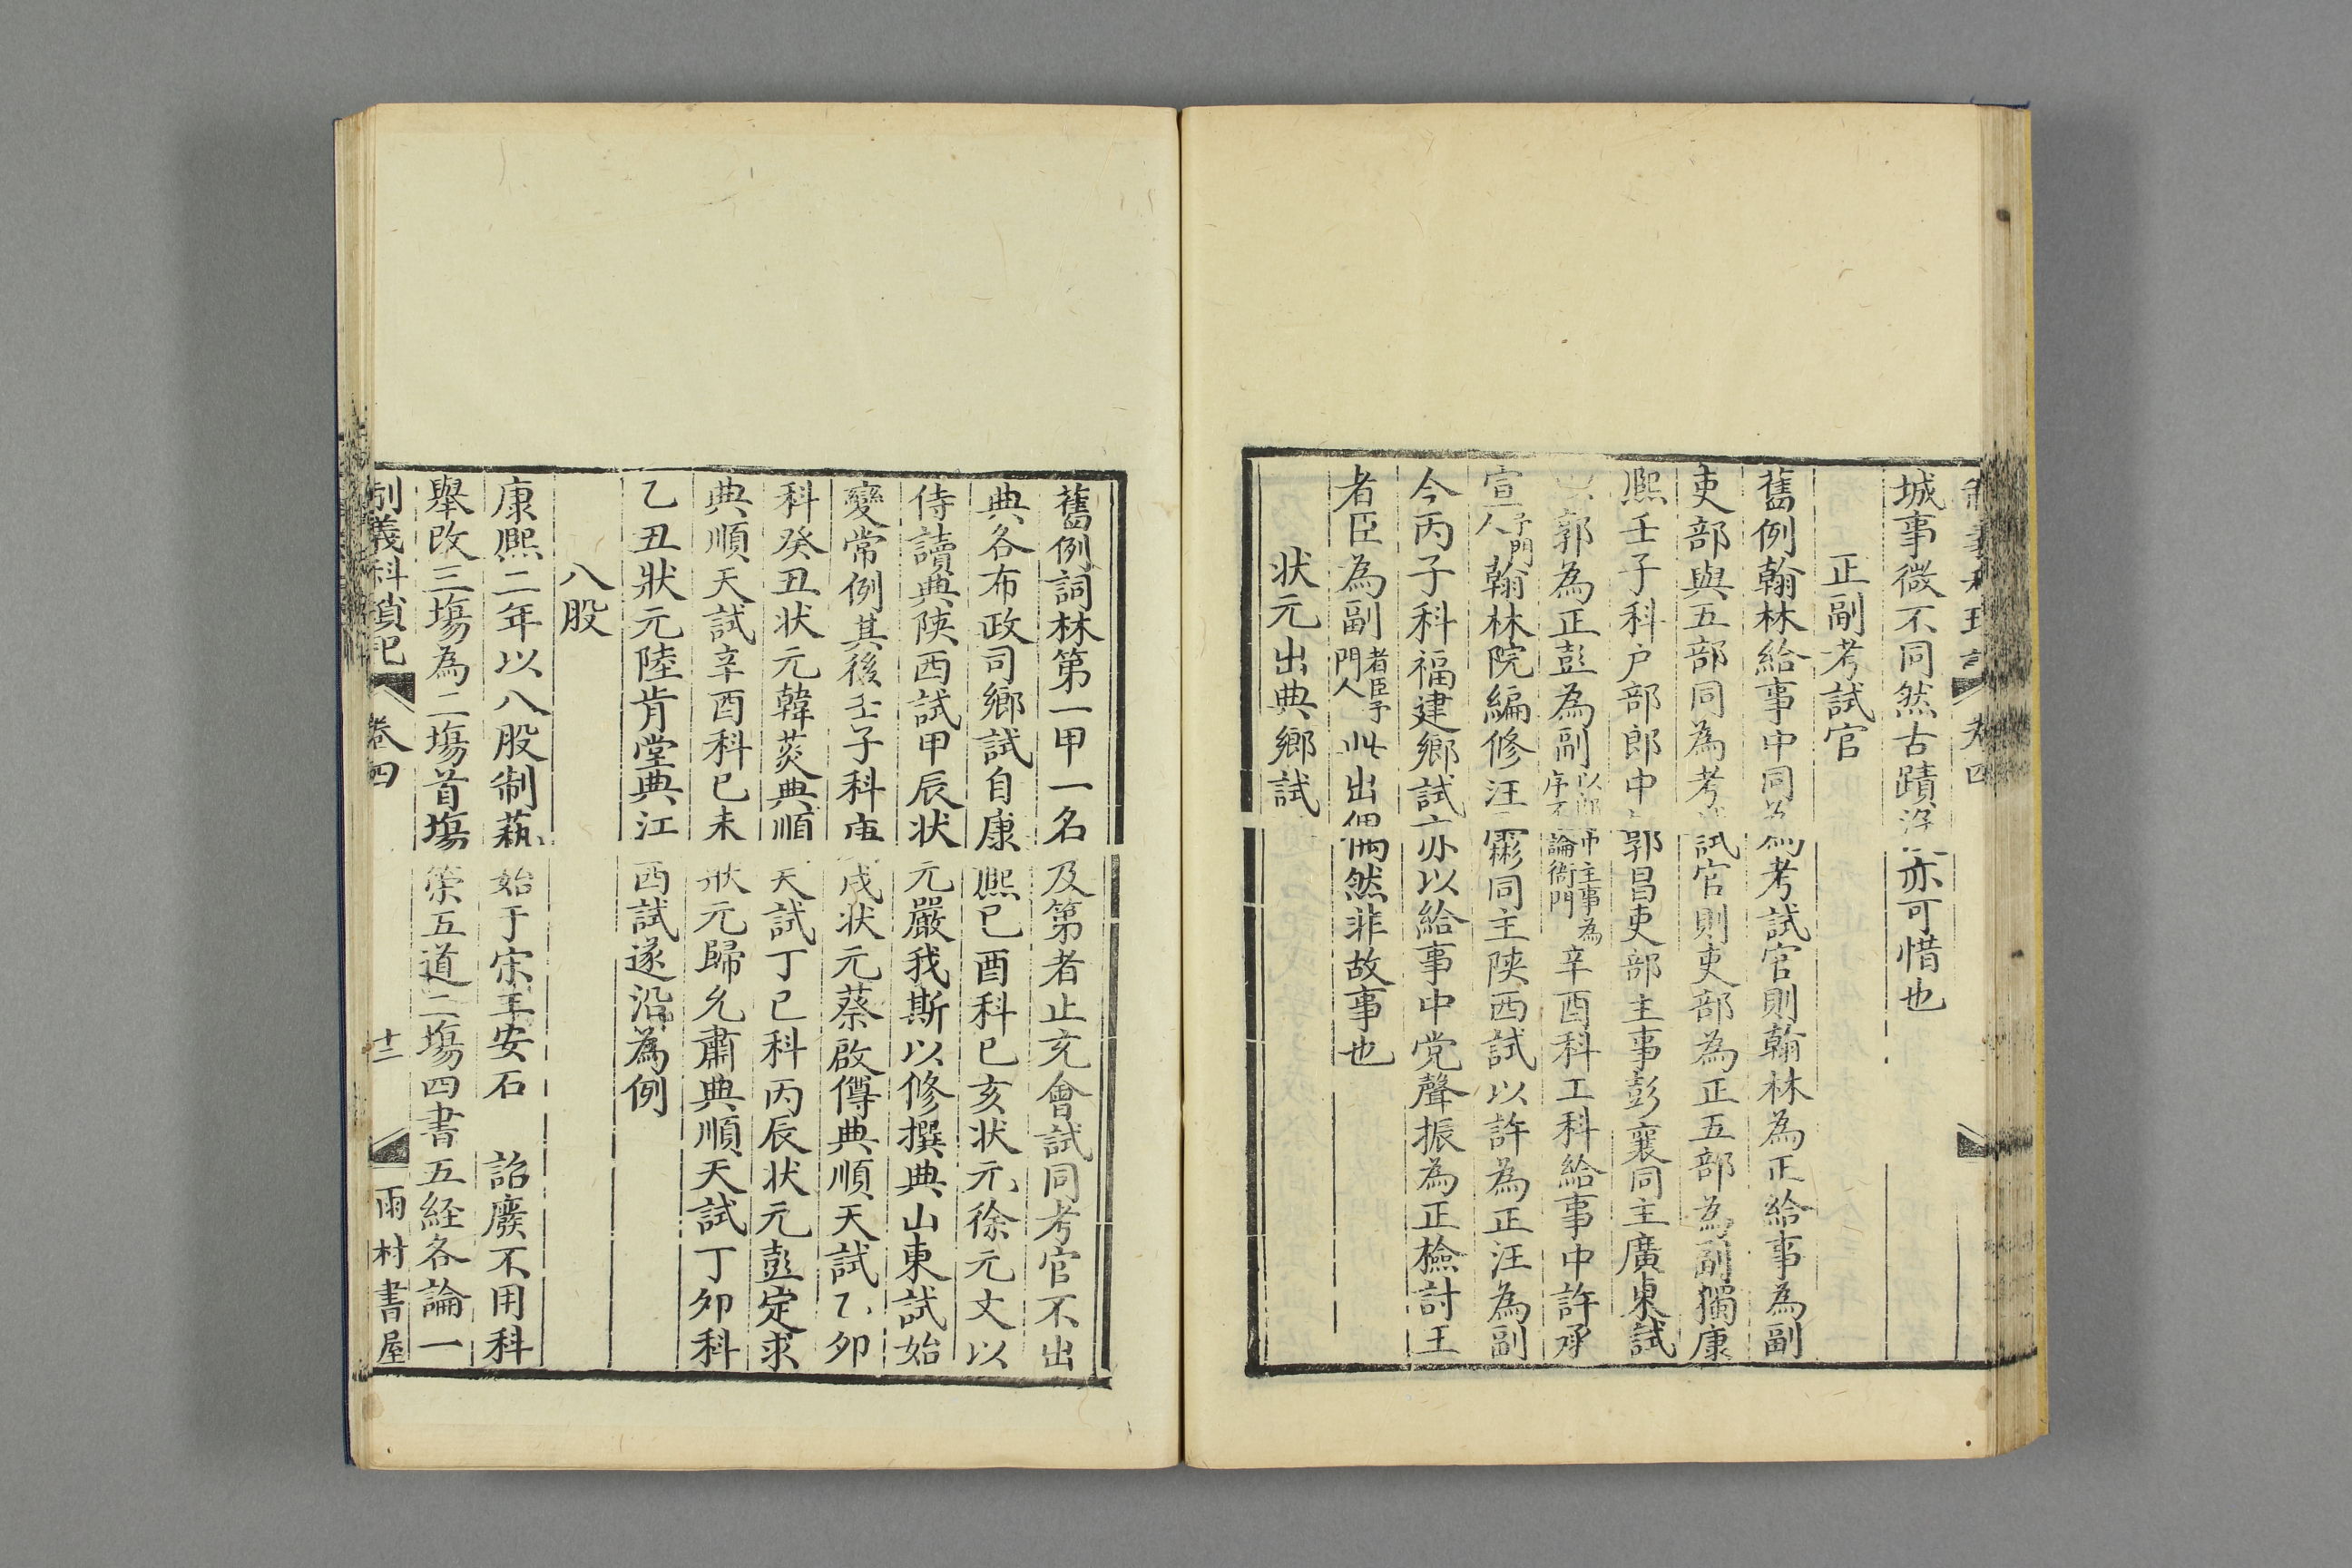 城事微不同然古蹟亦可惜也
正副考試官
舊例翰林給事中同為考試官則翰林為正給事為副
吏部與五部同為考試官則吏部為正五部為副獨康
熈壬子科户部郎中郭昌吏部主事彭襄同主廣東試
郭為正彭為副以郎中主事為序不論衙門辛酉科工科給事中許承
宣予門人翰林院編修汪霦同主陝西試以許為正汪為副
今丙子科福建鄉試亦以給事中党聲振為正檢討王
者臣為副者臣予門人此出偶然非故事也
状元出典鄉試
舊例詞林第一甲一名及第者止充會試同考官不出
典各布政司鄉試自康熈己酉科己亥状元徐元文以
侍讀典陝西試甲辰状元嚴我斯以修撰典山東試始
變常例其後壬子科庚戌状元蔡啟僔典順天試乙卯
科癸丑状元韓菼典順天試丁巳科丙辰状元彭定求
典順天試辛酉科己未狀元歸允肅典順天試丁卯科
乙丑狀元陸肯堂典江西試遂沿為例
八股
康熈二年以八股制蓺始于宋王安石 詔廢不用科
舉改三塲為二塲首塲策五道二塲四書五経各論一
制義科瑣記 卷四 十二 雨村書屋